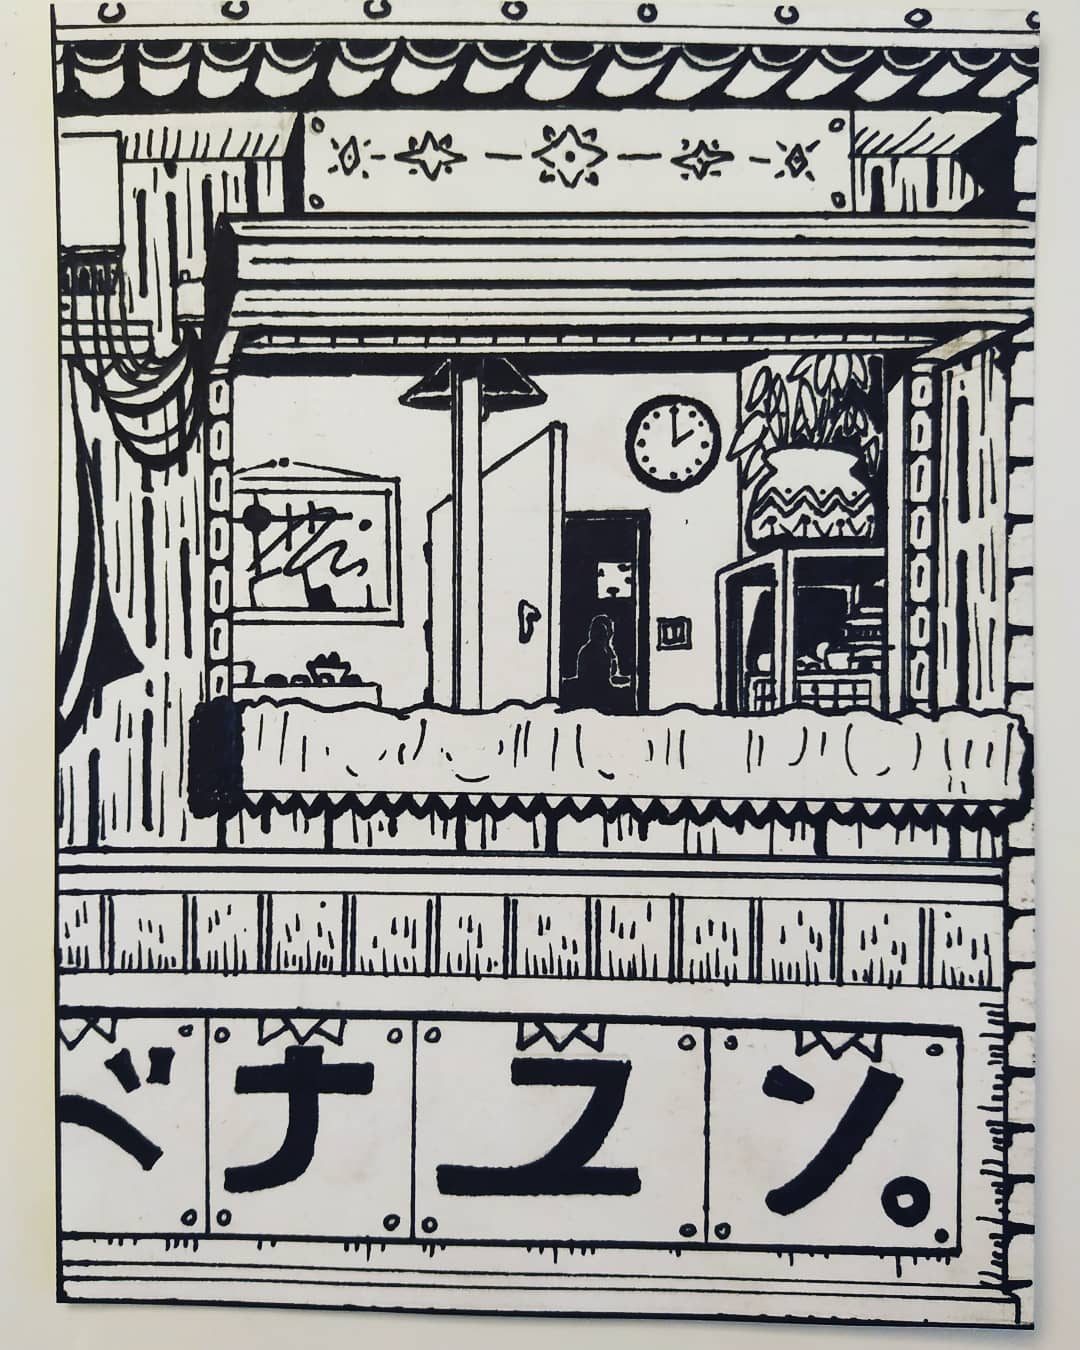 ベナユン。